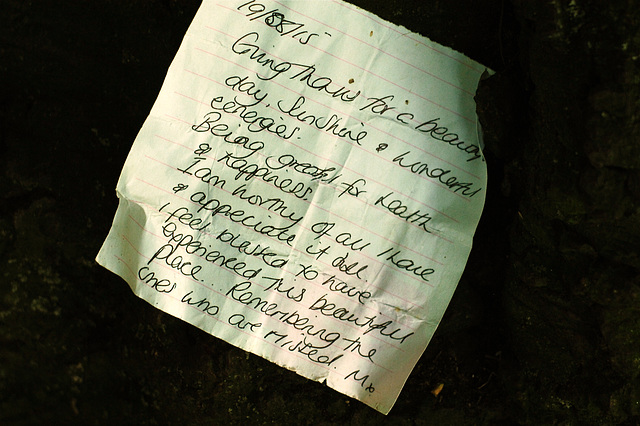 19/08/15
Giving thanks for a beautiful
day. Sunshine & wonderful
energies.
Being grateful for health
& Happiness.
I am worthy of all I have
& appreciate it all.
I feel blessed to have
experienced this beautiful
place.. Remembering the
ones who are missed. Mx